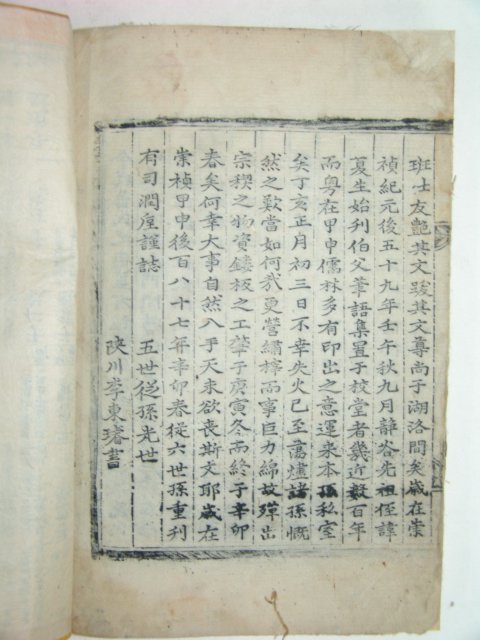 班士友艶其文跋其文尊尚于湖洛間矣歲在崇
禎紀元後五十九年壬午秋九月韶谷先祖侄諱
夏生始刊伯父筆語集置于校堂者幾近數百年
而粤在甲申儒林多有印出之意運來本孫私室
矣丁亥正月初三日不幸失火已至蕩爐諸孫慨
然之歎當如何哉更營繡梓而事巨力綿故殫出
宗稧之物資鋟板之工肇于庚寅冬而終于辛卯
春矣何幸大事自然入手天未欲喪斯文耶歲在
崇禎甲申後百八十七年辛卯春從六世孫重刊
有司澗垕謹誌
五世從孫光世
陜川李東璿書